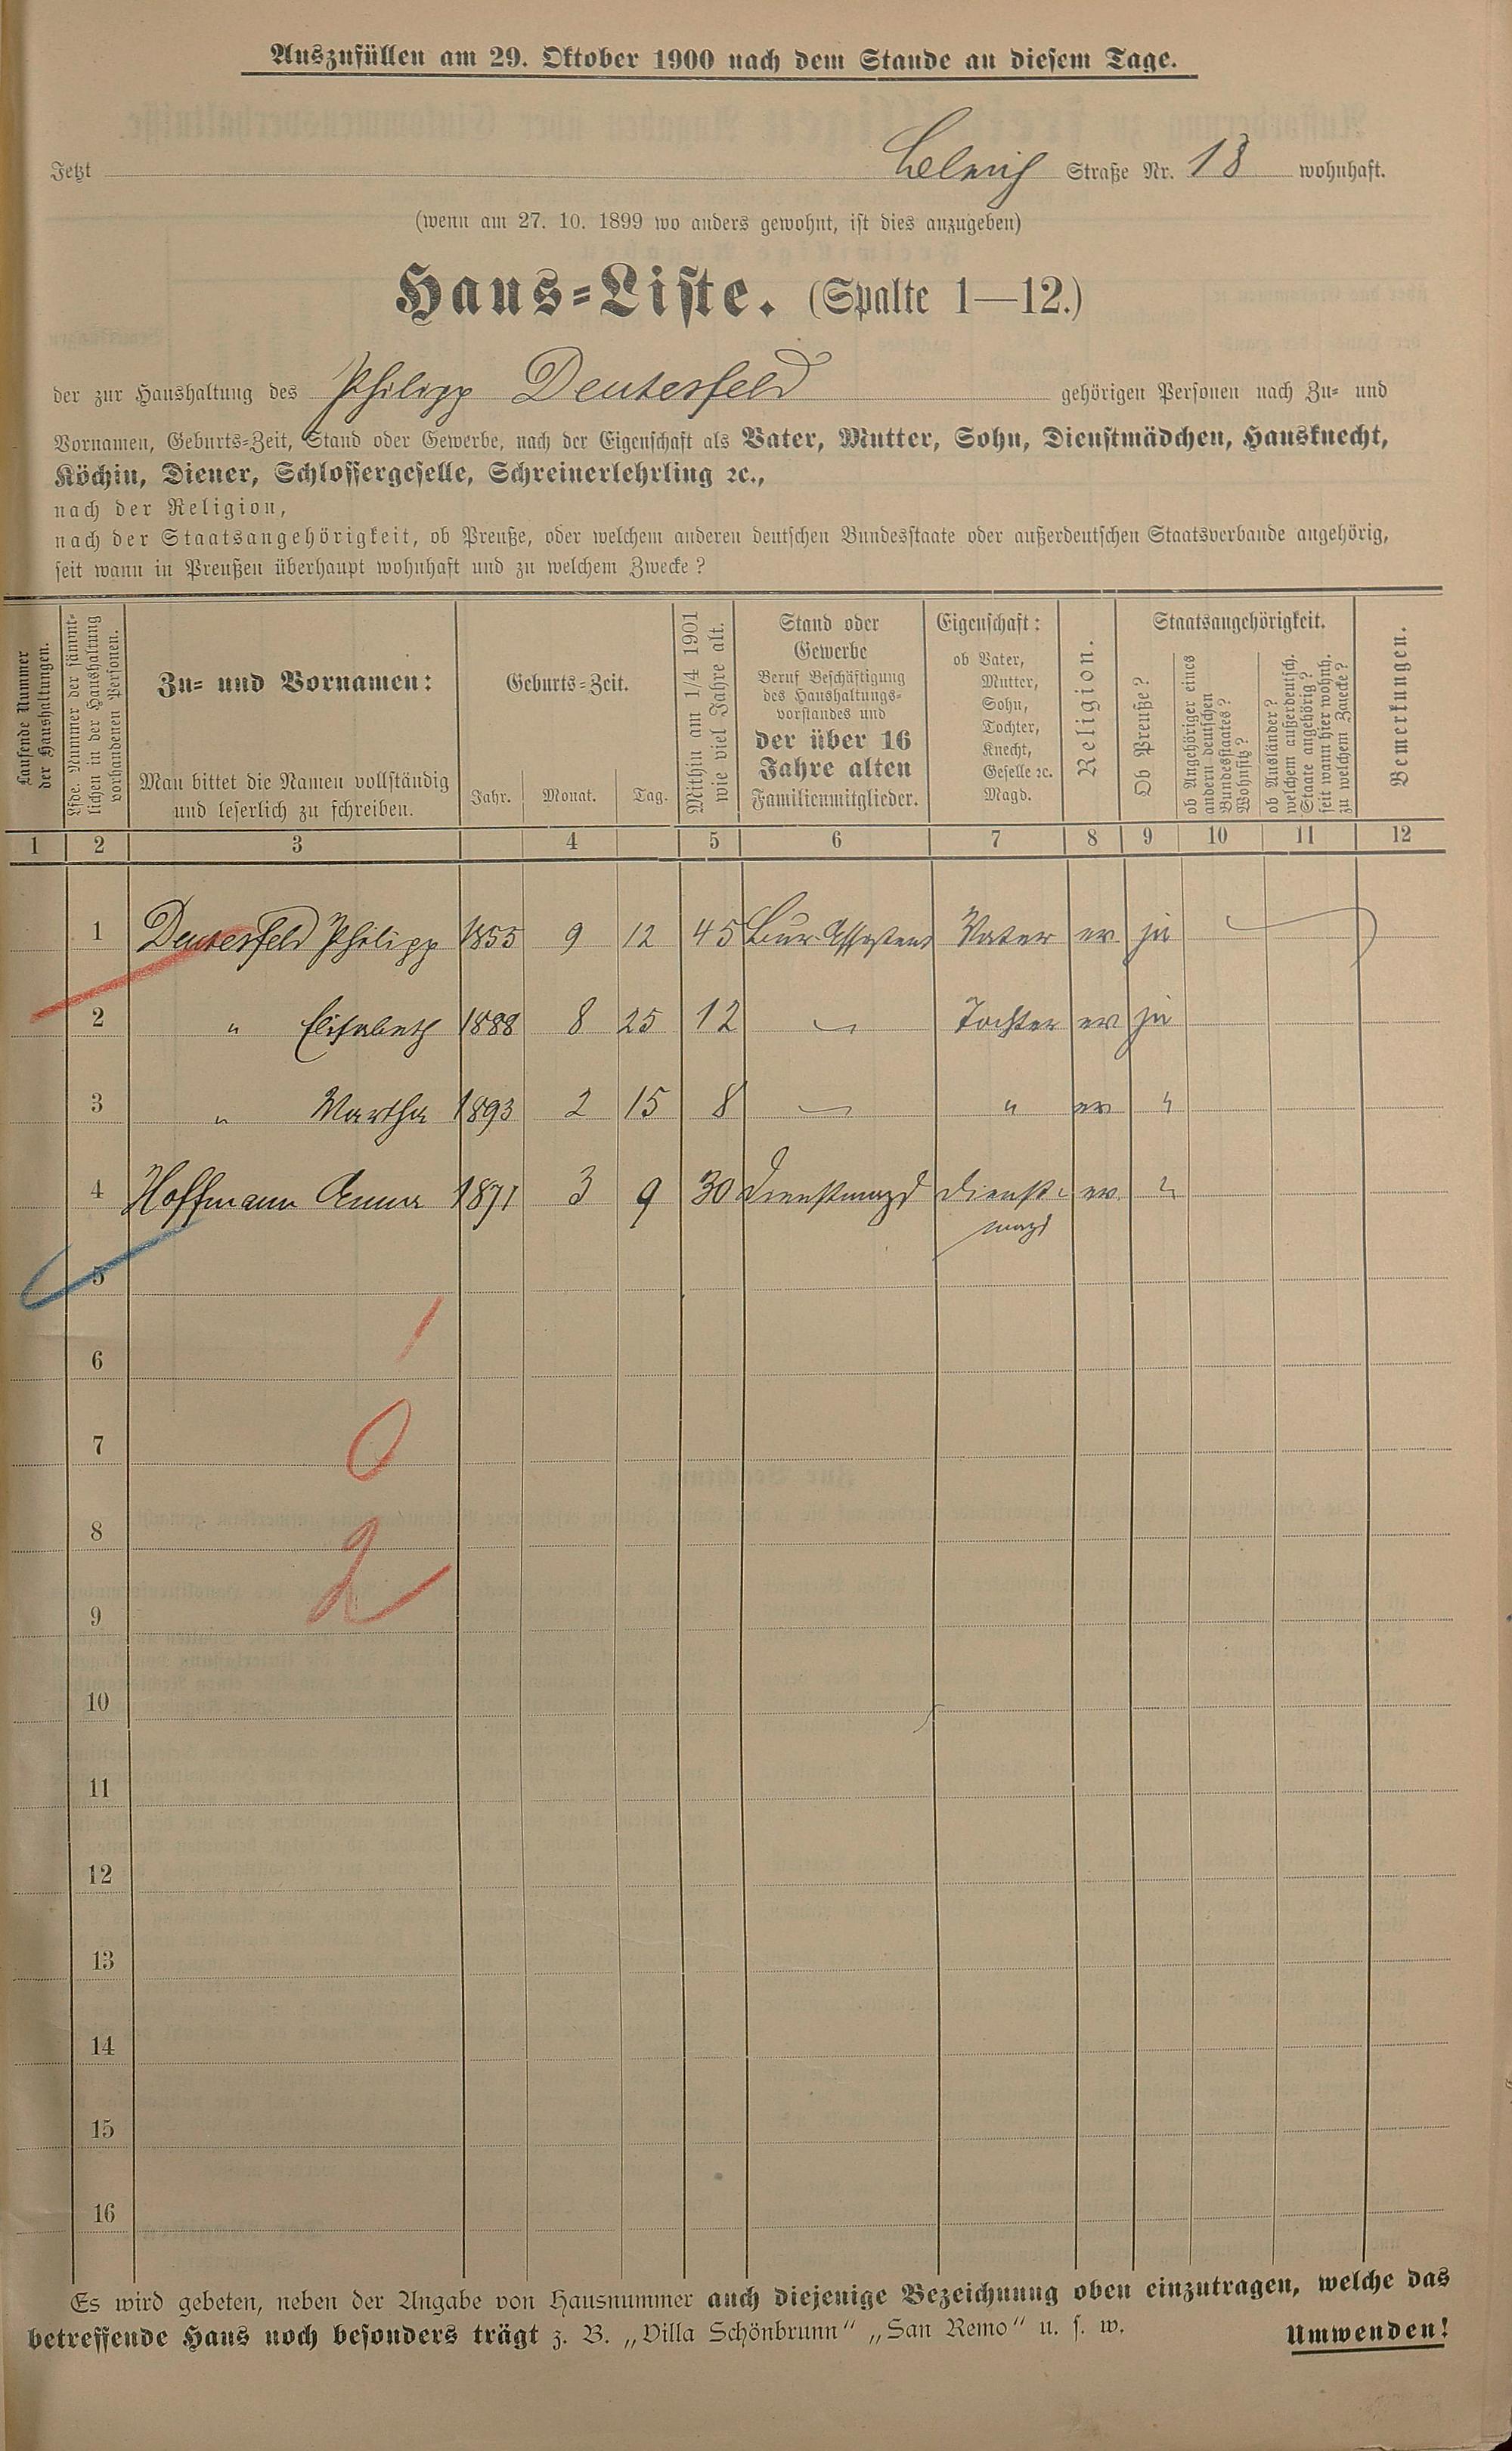 Auszufüllen am 29. Oktober 1900 nach dem Stande an diesem Tage.
Jetzt Straße Nr. 18 wohnhaft.
(wenn am 27. 10. 1899 wo anders gewohnt, ist dies anzugeben)
Haus-Liste. (Spalte 1—12.)
der zur Haushaltung des Philipp Deutesfeld gehörigen Personen nach Zu- und
Vornamen, Geburts-Zeit, Stand oder Gewerbe, nach der Eigenschaft als Vater, Mutter, Sohn, Dienstmädchen, Hausknecht,
Köchin, Diener, Schlossergeselle, Schreinerlehrling ꝛc.,
nach der Religion,
nach der Staatsangehörigkeit, ob Preuße, oder welchem anderen deutschen Bundesstaate oder außerdeutschen Staatsverbande angehörig,
seit wann in Preußen überhaupt wohnhaft und zu welchem Zwecke?
Laufende Nummer
der Haushaltungen.
Lfde. Nummer der sämmt-
lichen in der Haushaltung
vorhandenen Personen.
Zu- und Vornamen:
Man bittet die Namen vollständig
und leserlich zu schreiben.
Geburts-Zeit.
Jahr. Monat. Tag.
Mithin am 1/4 1901
wie viel Jahre alt.
Stand oder
Gewerbe
Beruf Beschäftigung
des Haushaltungs-
vorstandes und
der über 16
Jahre alten
Familienmitglieder.
Eigenschaft:
ob Vater,
Mutter,
Sohn,
Tochter,
Knecht,
Geselle ꝛc.
Magd.
Religion.
Staatsangehörigkeit.
Ob Preuße?
ob Angehöriger eines
andern deutschen
Bundesstaates?
Wohnsitz?
ob Ausländer?
welchem außerdeutsch.
Staate angehörig?
seit wann hier wohnh.
zu welchem Zwecke?
Bemerkungen.
1 2 3 4 5 6 7 8 9 10 11 12
1 Deutesfeld Philipp 1855 9 12 45 Bur. Assistent Vater ev ja
2 " Elisabeth 1888 8 25 12 Tochter ev ja
3 " Martha 1893 2 15 8 " ev "
4 Hoffmann Anna 1871 3 9 30 Dienstmagd Dienst- ev. "
magd
5
6 1
7 0
8
9 2
10
11
12
13
14
15
16
Es wird gebeten, neben der Angabe von Hausnummer auch diejenige Bezeichnung oben einzutragen, welche das
betreffende Haus noch besonders trägt z. B. „Villa Schönbrunn" „San Remo" u. s. w. Umwenden!